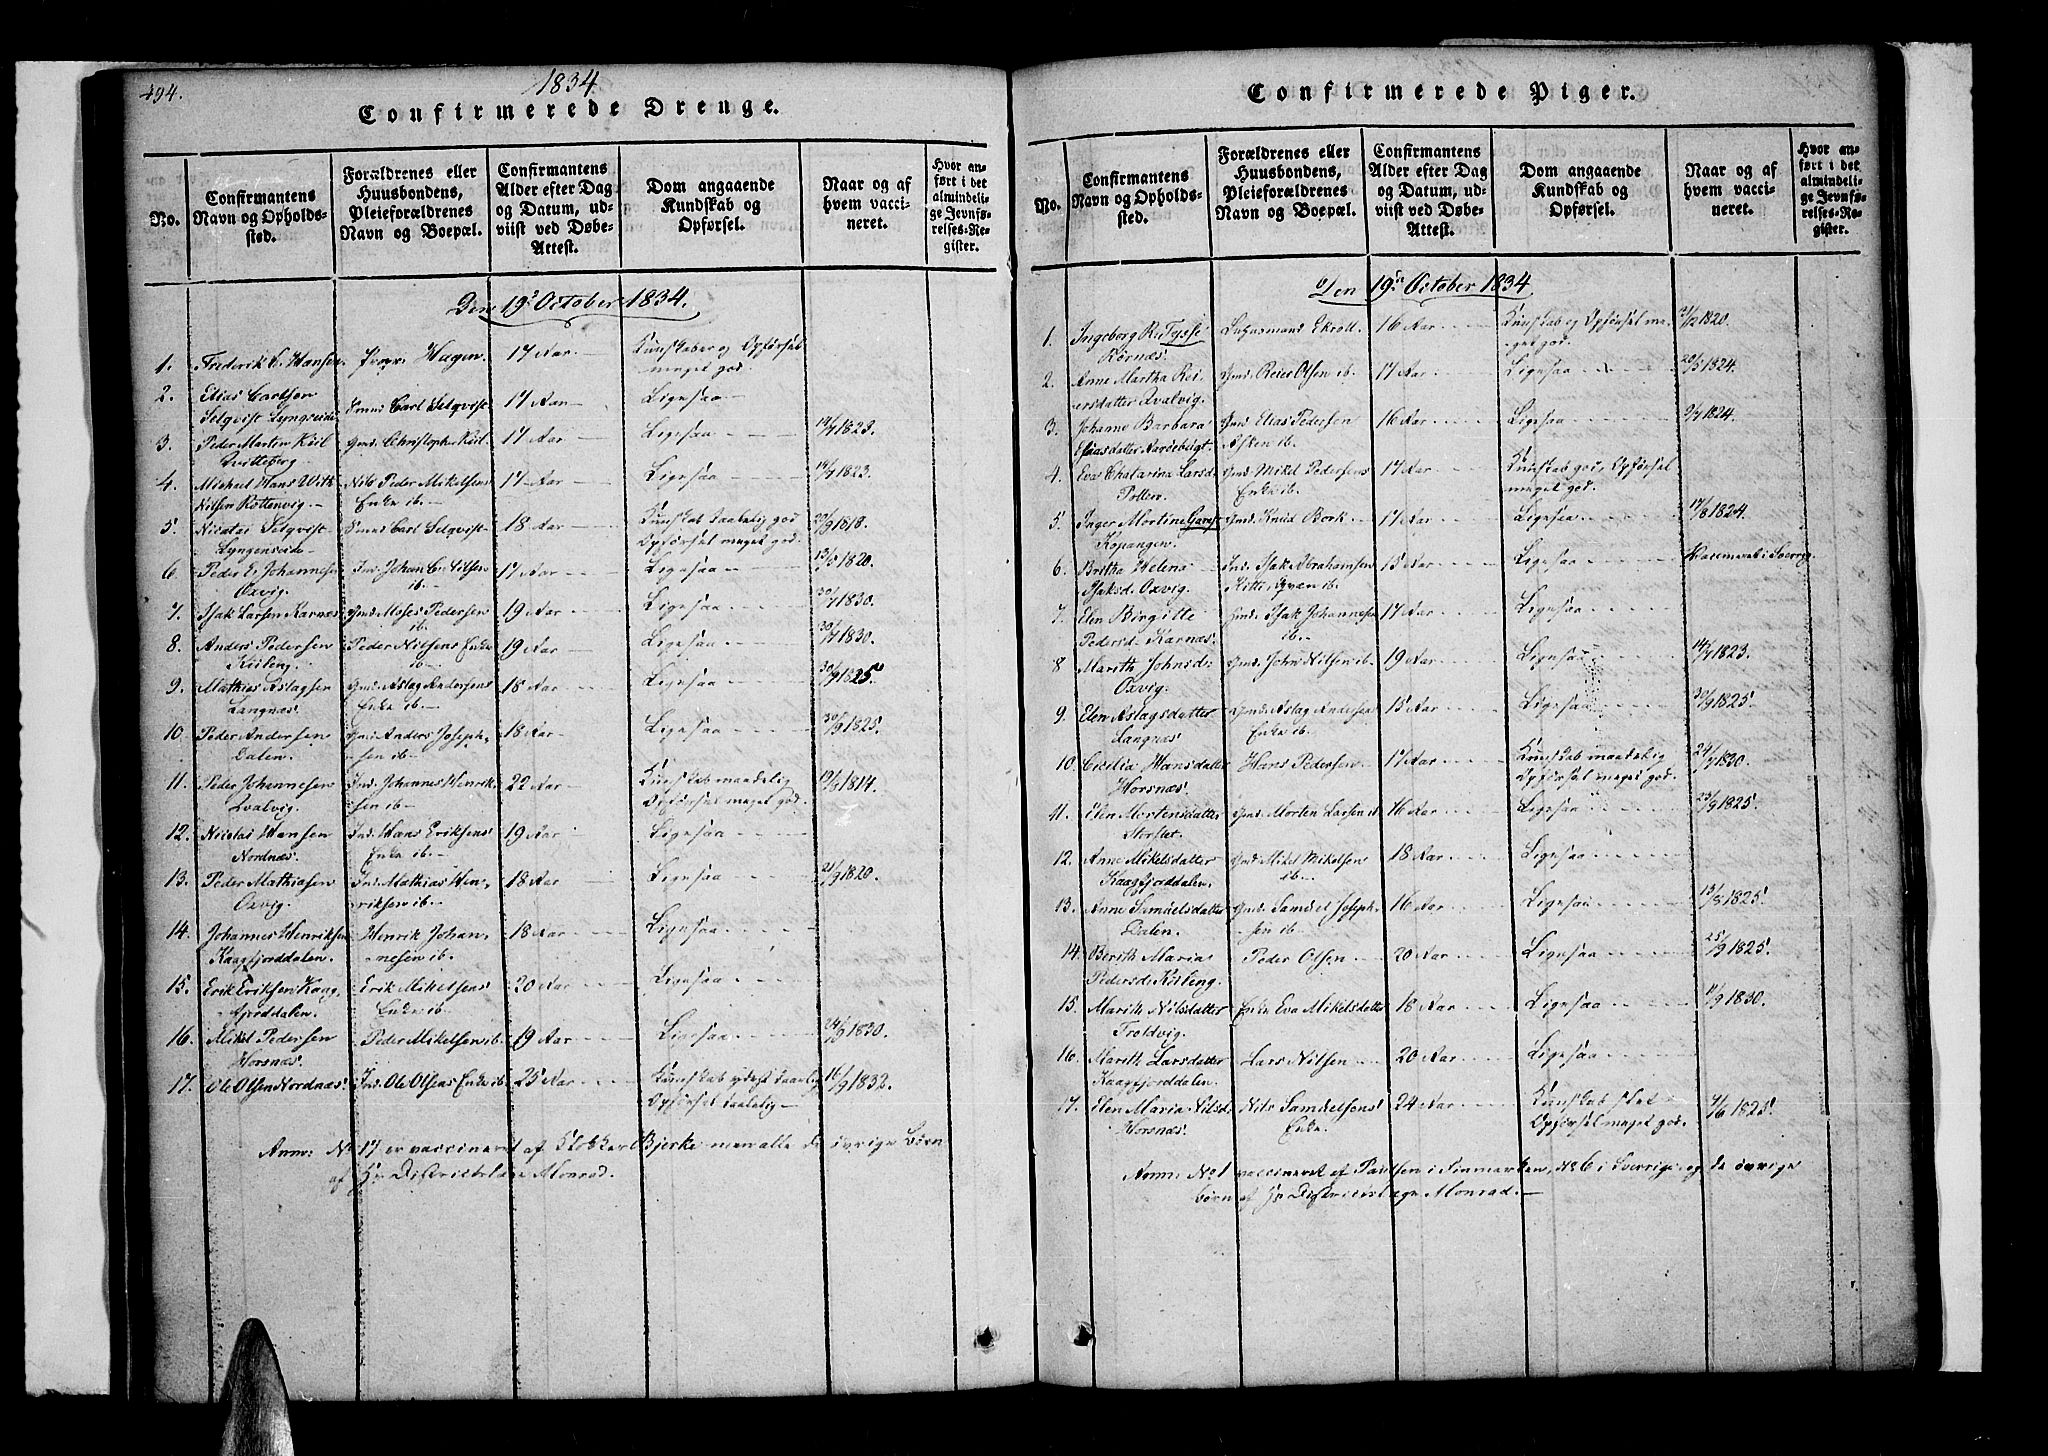 494.
1834
Confirmerede Drenge.
No.
Confirmantens Navn og Opholds-sted.
Forældrenes eller Huusbondens, Pleieforældrenes Navn og Boepæl.
Confirmantens Alder efter Dag og Datum, ud-viist ved Døbe-Attest.
Dom angaaende Kundskab og Opførsel.
Naar og af hvem vacci-neret.
Hvor an-ført i det almindeli-ge Jevnfø-relses-Re-gister.
Den 19de October 1834.
1. Frederik C. Hansen Hagen 17 Aar Kunskaber og Opførsel
meget god.
2. Elias Carlsen Carl Selqvist 17 Aar Ligesaa
Selqvist Lyngseidet
3. Peder Morten Kiil Gmd. Christoph. Kiil 17 Aar Ligesaa 14/7 1823.
Qvitteberg
4. Michael Hans With Nils Peder Mikelsens 17 Aar Ligesaa 14/7 1823.
Nilsen Rottenvig Enke ib.
5. Nicolai Selqvist Carl Selqvist 18 Aar Kunskab taalelig god 1818.
Lyngenseide Opførsel meget god.
6. Peder E. Johannesen Ind. Johan C. Nilsen 17 Aar Ligesaa 13/5 1820.
Oxvig. ib.
7. Isak Larsen Karnæs Gmd. Moses Pedersen 19 Aar Ligesaa 30/7 1830.
ib.
8. Anders Pedersen Peder Nilsens Enke 19 Aar Ligesaa 30/7 1830.
Kileng. ib
9. Mathias Aslagsen Gmd. Aslag Andersens 18 Aar Ligesaa 30/9 1825.
Langnæs. Enke ib.
10. Peder Andersen Gmd. Anders Joseph- 18 Aar Ligesaa 30/9 1825.
Dalen. sen ib
11. Peder Johannesen Ind. Johannes Henrik- 22 Aar Kunskab maadelig 1814.
Qvalvig. sen ib Opførsel meget god.
12. Nicolas Hansen Ind. Hans Eriksens 19 Aar Ligesaa
Nordnæs. Enke ib.
13. Peder Mathiasen Ind. Mathias Hen- 18 Aar Ligesaa 21/9 1820.
Oxvig. riksen ib.
14. Johannes Henriksen Henrik Johan- 18 Aar Ligesaa
Kaagfjorddalen. nesen ib.
15. Erik Eriksen Kaag- Erik Mikelsens 20 Aar Ligesaa
fjorddalen. Enke ib.
16. Mikel Pedersen Peder Mikelsen ib. 19 Aar Ligesaa 24/9 1830.
Horsnæs.
17. Ole Olsen Nordnæs Ind. Ole Olsens Enke ib 25 Aar Kunskab taalelig 16/9 1832.
Opførsel taalelig
Anm: No 17 er vaccineret af Klokker Bjerke men alle de øvrige Børn
af Hr Districtslæge Monrad.
Confirmerede Piger.
No.
Confirmantens Navn og Opholds-sted.
Forældrenes eller Huusbondens, Pleieforældrenes Navn og Boepæl.
Confirmantens Alder efter Dag og Datum, ud-viist ved Døbe-Attest.
Dom angaaende Kundskab og Opførsel.
Naar og af hvem vacci-neret.
Hvor an-ført i det almindeli-ge Jevnfø-relses-Re-gister.
Den 19de October 1834
1. Ingeborg Tysse 16 Aar Kunskab og Opførsel me- 1820.
Kornæs. get god.
2. Anne Martha Rei- Gmd. Reier Olsen ib. 17 Aar Ligesaa 20/5 1824.
ersdatter Qvalvig.
3. Johanne Barbara Gmd. Elias Pedersen 16 Aar Ligesaa 9/7 1824.
Eliasdatter ib.
4. Eva Chatarina Larsd. Gmd. Mikel Pedersens 17 Aar Kunskab god, Opførsel
Pollen. Enke ib. meget god.
5. Inger Mortine Gmd. Knud Bork 17 Aar Ligesaa 17/8 1824.
Kopangen.
6. Britha Helena Ind. Isak Abrahamsen 15 Aar Ligesaa i Sverrig.
Isaksd. Oxvig. Qvæn ib.
7. Elen Birgitte Gmd. Isak Johannesen 17 Aar Ligesaa
Pedersd. Karnæs. ib.
8 Marith Johnsd. Gmd. John Nilsen ib. 19 Aar Ligesaa 14/7 1823.
Oxvig.
9. Elen Aslagsdatter Gmd. Aslag Andersens 15 Aar Ligesaa 30/9 1825.
Langnæs Enke ib.
10. Cicilia Hansdatter Hans Pedersen 17 Aar Kunskab maadelig 24/7 1830.
Horsnæs. Opførsel meget god.
11. Elen Mortensdatter Gmd. Morten Larsen ib 16 Aar Ligesaa 23/9 1825.
Storslet.
12. Anne Mikelsdatter Gmd. Mikel Mikelsen 18 Aar Ligesaa
Kaagfjorddalen. ib.
13. Anne Samuelsdatter Gmd. Samuel Joseph- 16 Aar Ligesaa 13/8 1825.
Dalen. sen ib.
14. Berith Maria Peder Olsen 20 Aar Ligesaa 25/9 1825.
Pedersd. Kileng.
15. Marith Nilsdatter Enke Eva Mikelsdatter 18 Aar Ligesaa 1830.
Troldvig.
16. Marith Larsdatter Lars Nilsen 20 Aar Ligesaa
Kaagfjorddalen.
17. Elen Maria Nilsd. Nils Samuelsens 24 Aar Kunskab slet 4/6 1825.
Horsnæs. Enke. Opførsel meget god.
Anm: No 1 vaccineret af Paulsen i Finmarken, No 6 i Sverrige og de øvrige
Børn af Hr Districtslæge Monrad.